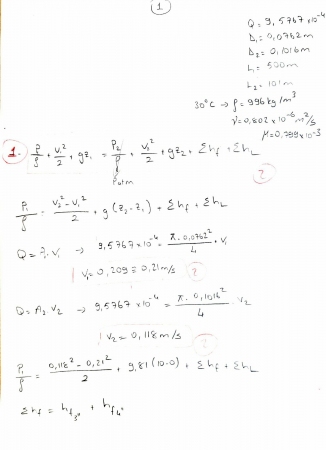 1
Q = 9,5767×10⁻⁴
D₁ = 0,0762m
D₂ = 0,1016m
L₁ = 500m
L₂ = 101m
30°C → ρ = 996 kg/m³
ν = 0,802 × 10⁻⁶ m²/s
μ = 0,799×10⁻³
1 P/ρ + V₁²/2 + gz₁ = P₂/ρ + V₂²/2 + gz₂ + Σhf + ΣhL
Patm
?
P₁/ρ = (V₂² - V₁²)/2 + g(z₂-z₁) + Σhf + ΣhL
Q = A₁ V₁ → 9,5767×10⁻⁴ = π.0,0762²/4 . V₁
V₁ = 0,209 ≅ 0,21 m/s ?
Q = A₂ V₂ → 9,5767×10⁻⁴ = π.0,1016²/4 . V₂
V₂ = 0,118 m/s ?
P₁/ρ = (0,118² - 0,21²)/2 + 9,81(10-0) + Σhf + ΣhL
Σhf = hf3" + hf4"